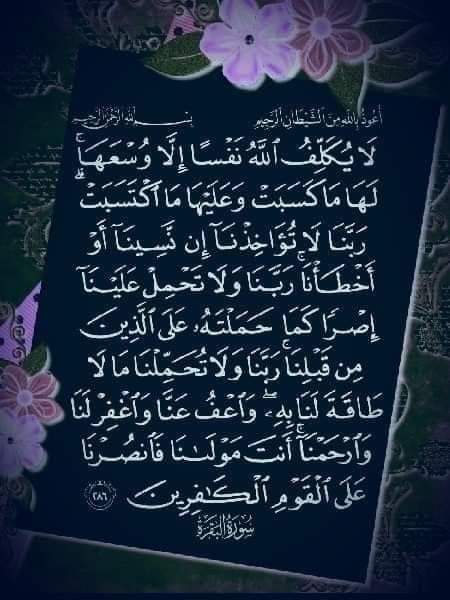 أَعُوذُ بِاللَّهِ مِنَ الشَّيْطَانِ الرَّجِيمِ بِسْمِ اللَّهِ الرَّحْمَٰنِ الرَّحِيمِ
لَا يُكَلِّفُ ٱللَّهُ نَفْسًا إِلَّا وُسْعَهَاۚ
لَهَا مَا كَسَبَتْ وَعَلَيْهَا مَا ٱكْتَسَبَتْۗ
رَبَّنَا لَا تُؤَاخِذْنَآ إِن نَّسِينَآ أَوْ
أَخْطَأْنَاۚ رَبَّنَا وَلَا تَحْمِلْ عَلَيْنَآ
إِصْرًا كَمَا حَمَلْتَهُۥ عَلَى ٱلَّذِينَ
مِن قَبْلِنَاۚ رَبَّنَا وَلَا تُحَمِّلْنَا مَا لَا
طَاقَةَ لَنَا بِهِۦۖ وَٱعْفُ عَنَّا وَٱغْفِرْ لَنَا
وَٱرْحَمْنَآۚ أَنتَ مَوْلَىٰنَا فَٱنصُرْنَا
عَلَى ٱلْقَوْمِ ٱلْكَٰفِرِينَ ٢٨٦
سُورَةُ الْبَقَرَةِ